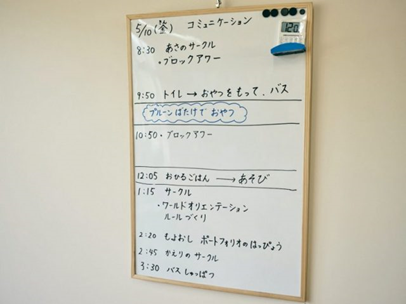 5/10(金) コミュニケーション
8:30 あさのサークル
・ブロックアワー
9:50 トイレ → おやつをもって、バス
プルーンばたけでおやつ
10:50・ブロックアワー
12:05 おひるごはん → あそび
1:15 サークル
・ワールドオリエンテーション
ルールづくり
2:20 もよおし ポートフォリオのはっぴょう
2:45 かえりのサークル
3:30 バスしゅっぱつ